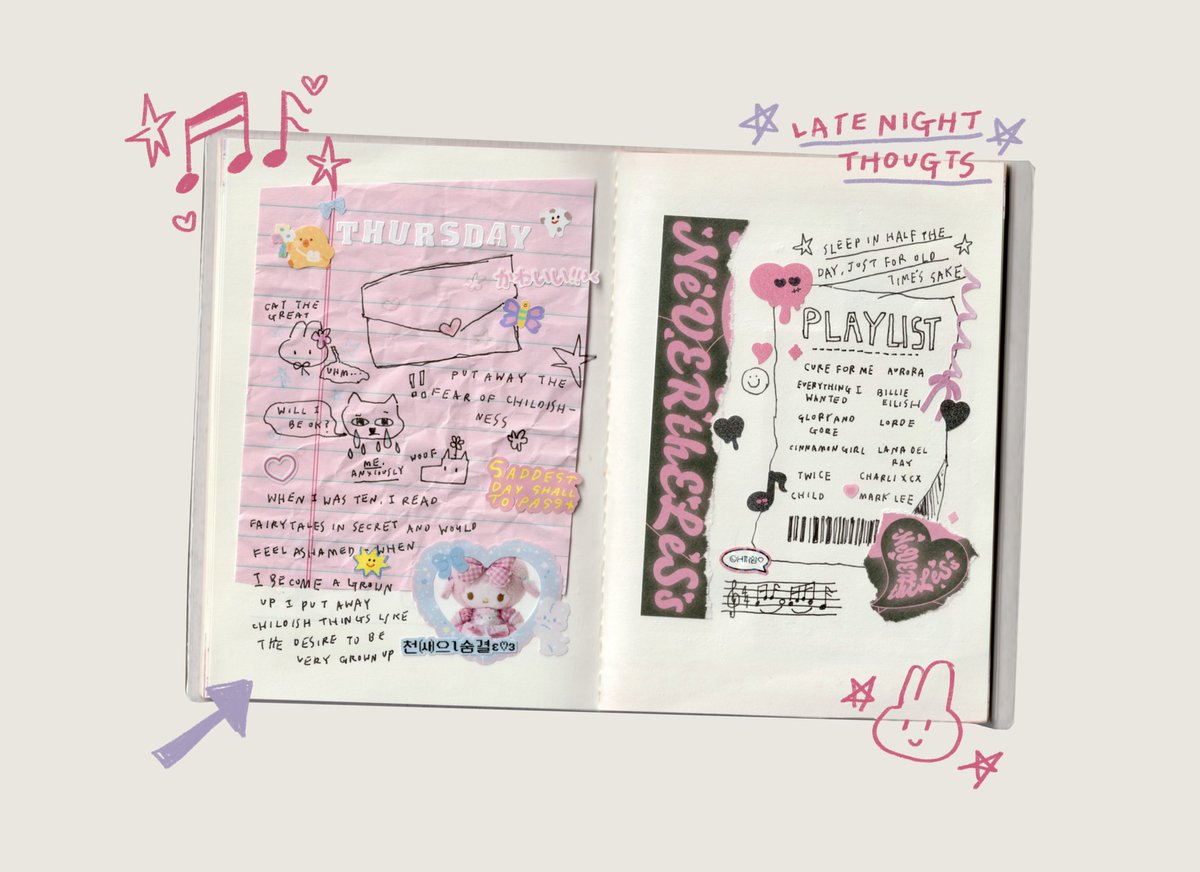 LATE NIGHT
THOUGTS
THURSDAY
かわいい!!
CAT THE
GREAT
UHM...
PUT AWAY THE
FEAR OF CHILDISH-
NESS
WILL I
BE OK?
ME,
ANXIOUSLY
WOOF
SADDEST
DAY SHALL
TO PASS
WHEN I WAS TEN, I READ
FAIRYTALES IN SECRET AND WOULD
FEEL ASHAMED - WHEN
I BECOME A GROWN
UP I PUT AWAY
CHILDISH THINGS LIKE
THE DESIRE TO BE
VERY GROWN UP
천(사)으l숨결ε♡3
NEVERtheLess
SLEEP IN HALF THE
DAY, JUST FOR OLD
TIME'S SAKE
PLAYLIST
CURE FOR ME AURORA
EVERYTHING I
WANTED BILLIE
EILISH
GLORY AND
GORE LORDE
CINNAMON GIRL LANA DEL
RAY
TWICE CHARLI XCX
CHILD MARK LEE
Nevertheless